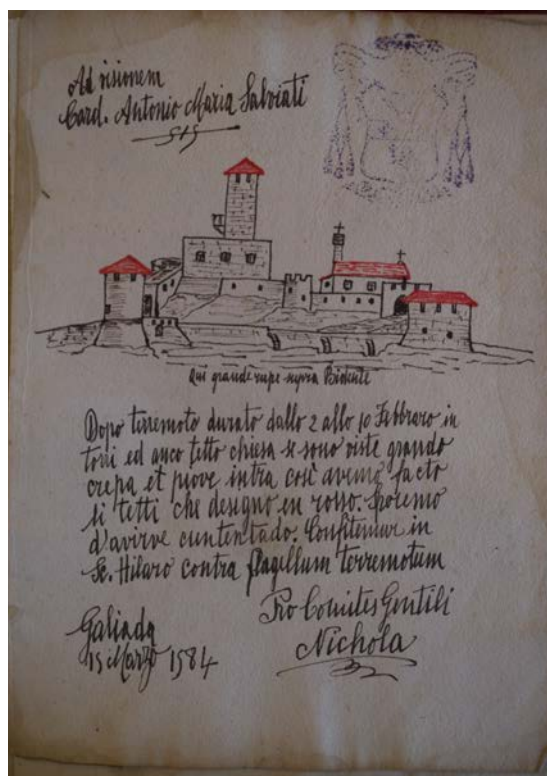 Ad visionem
Card. Antonio Maria Salviati
Qui grande rupe sopra Bidente
Dopo terremoto durato dallo 2 allo 10 Febbraro in
torri ed anco tetto chiesa se sono viste grando
crepa et piove intra così avemo facto
li tetti che desegno en rosso. Speremo
d'avirve cuntentado. Confitemur in
St. Hilaro contra flagellum terremotum
Pro Comites Gentili
Nichola
Galiada
15 Marzo 1584